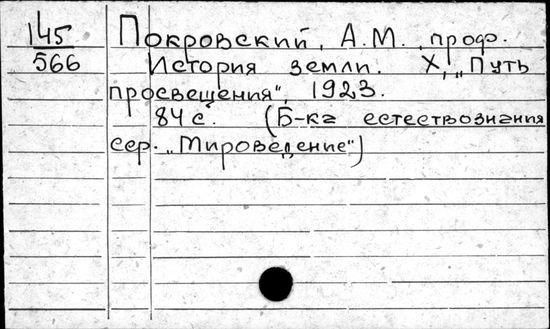 145
566
Покровский, А.М., проф.
История земли. Х, „Путь
просвещения", 1923.
84 с. (Б-ка естествознания
сер. „Мироведение")